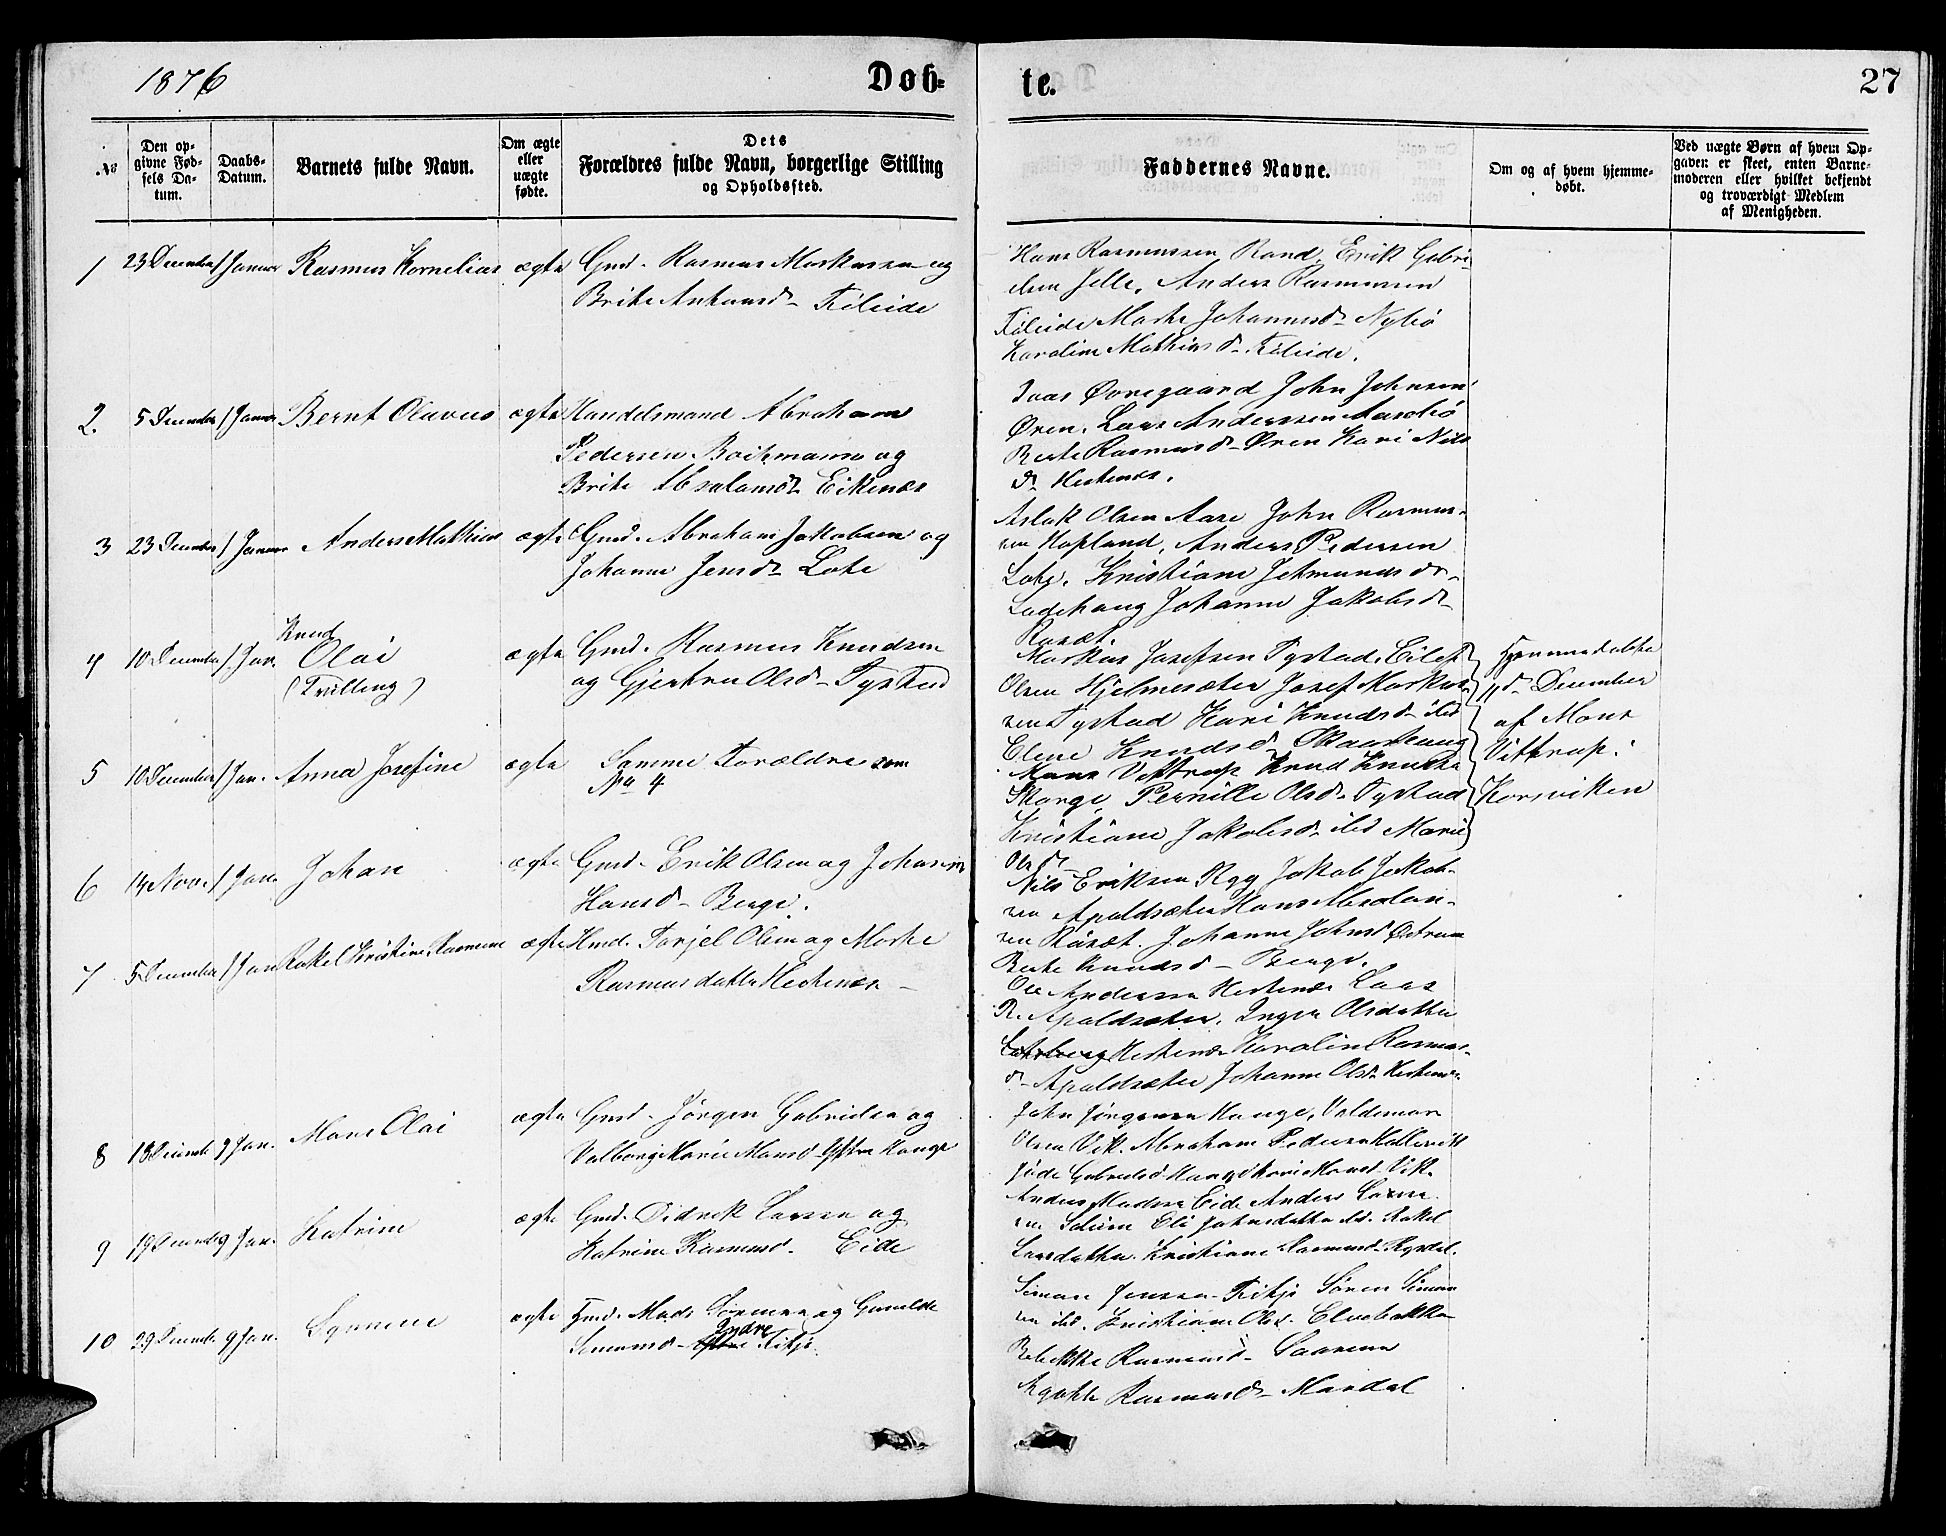 1876
Døb-
te.
27
No
Den op-
givne Fød-
sels Da-
tum.
Daabs-
Datum.
Barnets fulde Navn.
Om ægte
eller
uægte
fødte.
Dets
Forældres fulde Navn, borgerlige Stilling
og Opholdssted.
Faddernes Navne.
Om og af hvem hjemme-
døbt.
Ved uægte Børn af hvem Op-
gaven er skeet, enten Barne-
moderen eller hvilket bekjendt
og troværdigt Medlem
af Menigheden.
1 23 December 1 Januar Rasmus Kornelius ægte Gmd. Rasmus Markussen og
Brite Antonsd- Fileide
Hans Rasmussen Rand, Erik Gabri-
elsen Jelle, Anders Rasmussen
Fileide Marte Johannesd- Nybø
Karoline Mathiasd- Fileide.
2. 5 December 1 Januar Bernt Olavus ægte Handelsmand Abraham
Pedersen Boitmann og
Brite Absalonsd- Eikenæs
Ivar Øvregaard John Johnsen
Øren. Lars Anderssen Aasebø
Berte Rasmusd- Øren Kari Nils
d- Hestenæs.
3 23 December 1 Januar Anders Mathias ægte Gmd. Abraham Jakobsen og
Johanne Jensd- Lote
Aslak Olsen Aase John Rasmus-
sen Hopland, Anders Pedersen
Lote. Kristiane Jetmundsd-
Ladehaug Johanne Jakobsd-
Raset.
4 10 December 1 Jan. Knud
Olai
(Tvilling)
ægte Gmd. Rasmus Knudsen
og Gjertru Olsd- Tystad
Markus Josefsen Tystad. Eilef
Olsen Hjelmesæter Josef Markus-
sen Tystad Kari Knudsd- ibd
Elene Knudsd- Skaarhaug
Hjemmedøbte
11d- December
af Mons
Vittrup.
Korsviken
5 10 December 1 Jan. Anna Josefine ægte Samme Forældre som
No 4
Mons Vittrup Knud Knudsen
Skorge Pernille Olsd- Tystad
Kristiane Jakobsd- ibd Marie
Olsd-
6 14 Nov. 1 Jan. Johan ægte Gmd. Erik Olsen og Johanne
Hansd- Berge.
Nils Eriksen Ryg Jakob Jakob-
sen Apaldsæter Hans Absalon-
sen Raset. Johanne Johnsd
Berte Knudsd- Berge.
7 5 December 1 Jan Rakel Kristine Rasmine ægte Hmd. Torjel Olsen og Marte
Rasmusdatter Hestenæs -
Ole Anderssen Hestenæs Lars
R. Apaldsæter. Inger Olsdatter
Hestenæs Karoline Rasmus-
d- Apaldsæter Johanne Olsd- Hestenæs
8 18 Decemb 9 Jan. Mons Olai ægte Gmd. Jørgen Gabrielsen og
Valborg Marie Monsd- Hauge
John Jørgensen Hauge, Valdemar
Olsen Vik. Abraham Pedersen
Gabrielsd Hauge Marie Monsd- Vik.
9 19 Decemb 9 Jan. Katrine ægte Gmd. Didrik Larsen og
Katrine Rasmusd. Eide
Anders Madssen Eide Anders Lars-
sen Eli Johnsdatter ibd. Rakel
Larsdatter. Kristiane Rasmusd-
10 29 Decemb 9 Jan. ægte Hmd. Mads og Gunilde
Simonsd- Indre
Simon Jenssen Søren Simon-
sen ibd. Kristiane Olsd. Elvebakken
Rebekka Rasmusd-
Agathe Rasmusd- Mardal